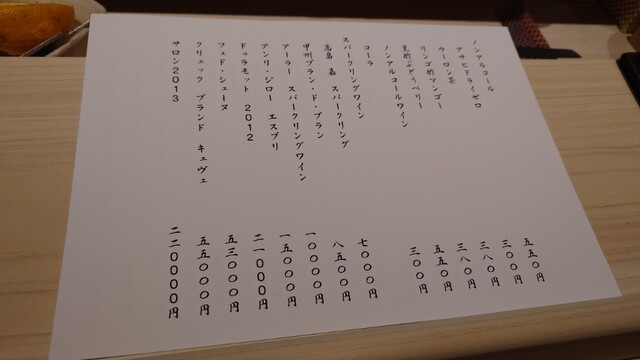 ノンアルコール
アサヒドライゼロ 五五〇円
ウーロン茶 三〇〇円
リンゴ酢マンゴー 三八〇円
黒酢ぶどうベリー 三八〇円
ノンアルコールワイン 五五〇円
コーラ 三〇〇円
スパークリングワイン
高畠 嘉 スパークリング 七〇〇〇円
甲州ブラン・ド・ブラン 八五〇〇円
アーラー スパークリングワイン 一〇〇〇〇円
アンリ・ジロー エスプリ 一五〇〇〇円
ドゥラモット 2012 二一〇〇〇円
フェド・シェーヌ 五三〇〇〇円
クリュック グランド キュヴェ 五五〇〇〇円
サロン2013 二二〇〇〇〇円